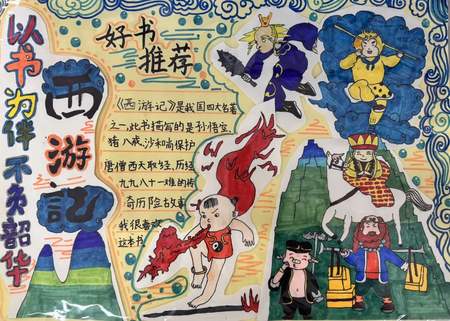 以书为伴 不负韶华
西游记
好书
推荐
《西游记》是我国四大名著
之一,此书描写的是孙悟空,
猪八戒,沙和尚保护
唐僧西天取经,历经
九九八十一难的传
奇历险故事
我很喜欢
这本书